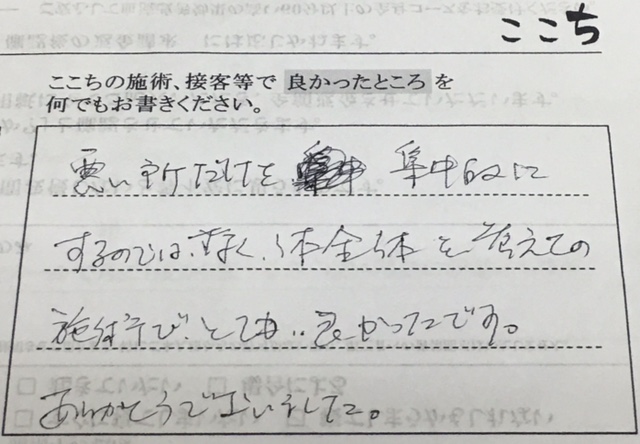 ここち
ここちの施術、接客等で 良かったところ を
何でもお書きください。
悪い所だけを 集中的に
するのでは無く、体全体を考えての
施術で、とても良かったです。
ありがとうございました。